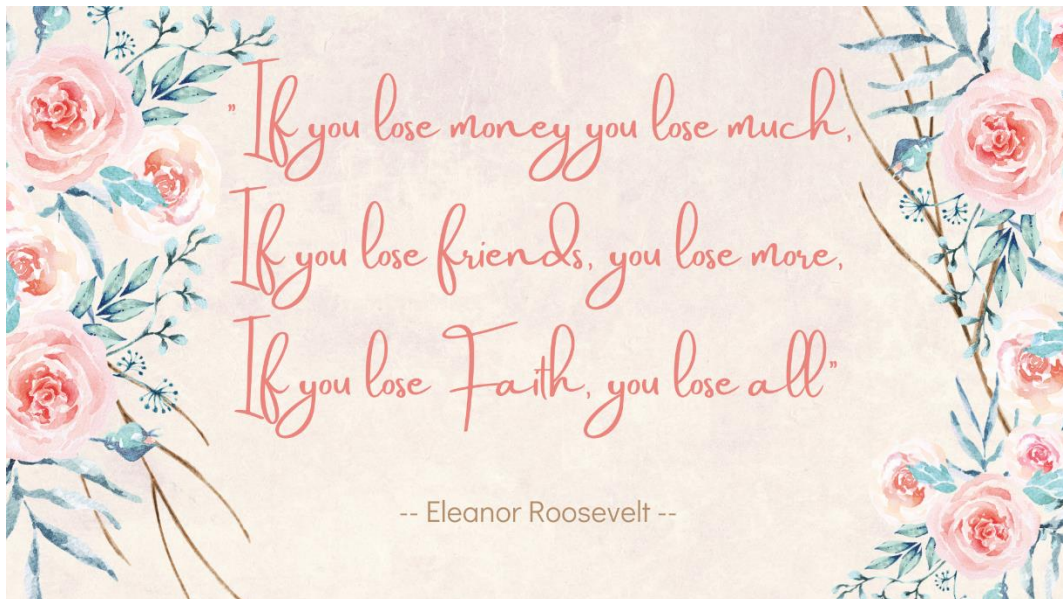 "If you lose money you lose much,
If you lose friends, you lose more,
If you lose Faith, you lose all"
-- Eleanor Roosevelt --